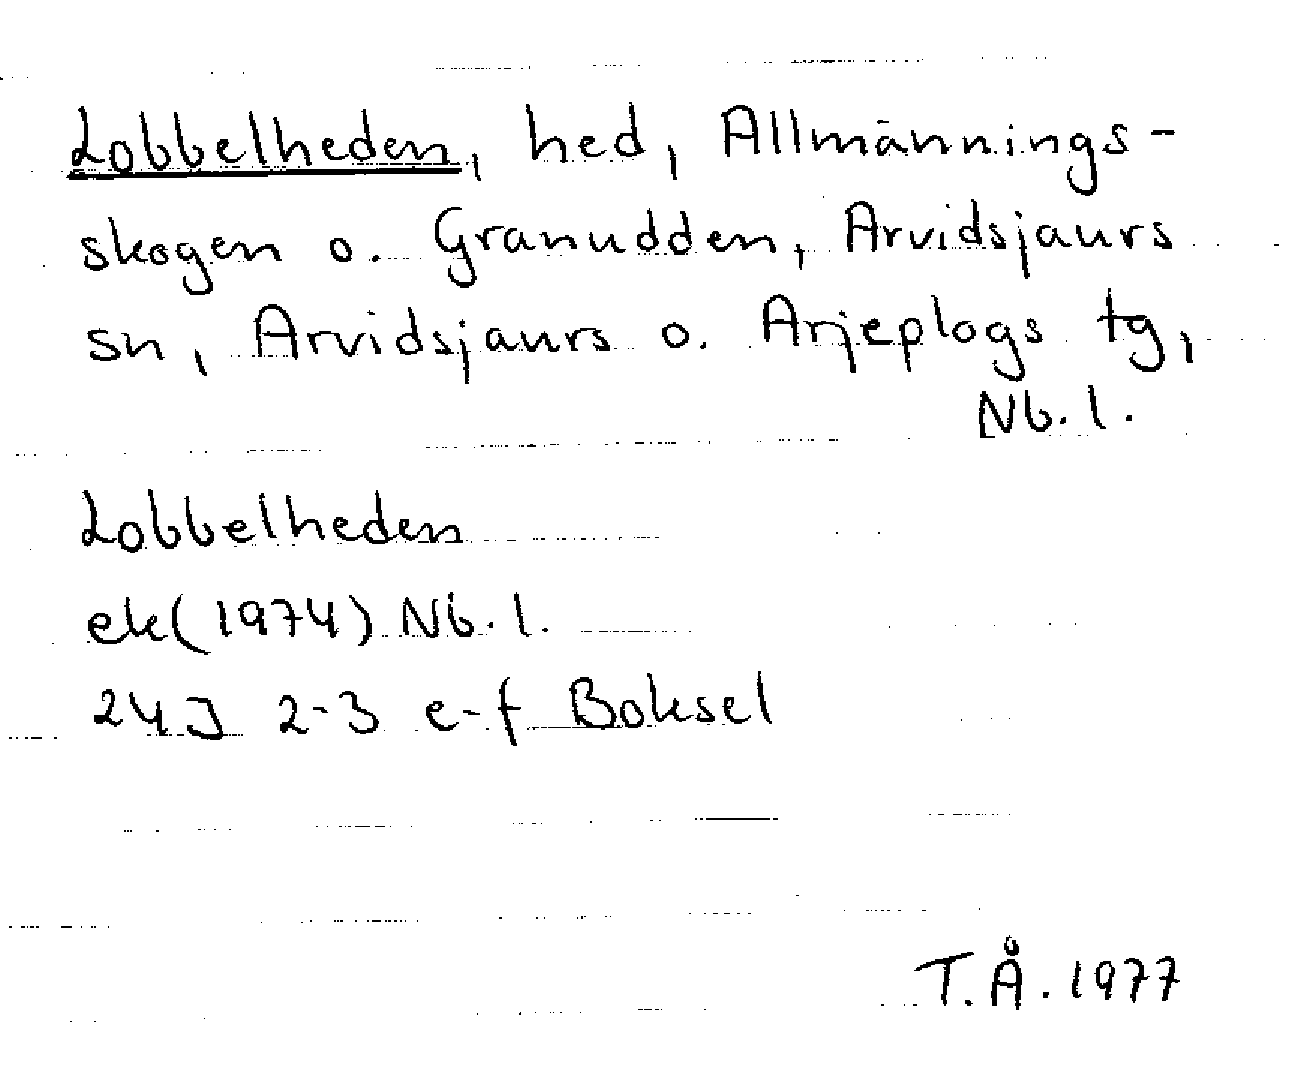 Lobbelheden, hed, Allmännings-
skogen o. Granudden, Arvidsjaurs
sn, Arvidsjaurs o. Arjeplogs tg,
Nb. l.
Lobbelheden
ek (1974) Nb. l.
24J 2-3 e-f Boksel
T.Å. 1977